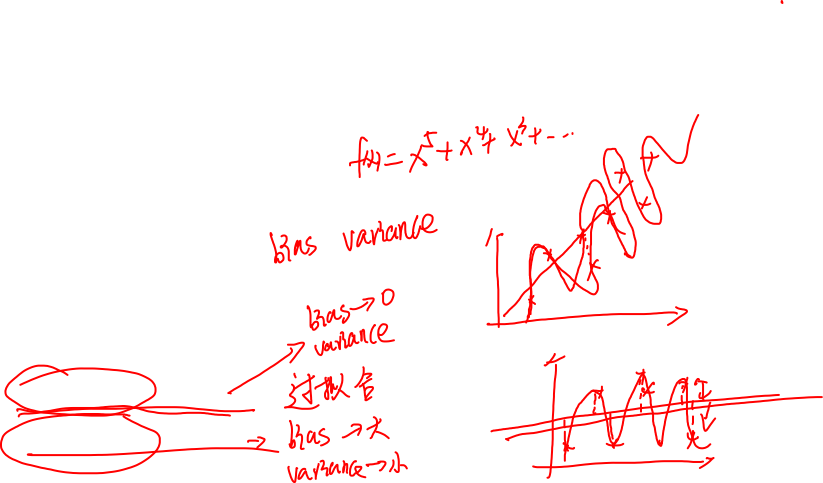 f(x)=x⁵+x⁴+x³+...
bias variance
bias→0
variance
过拟合
bias→大
variance→小